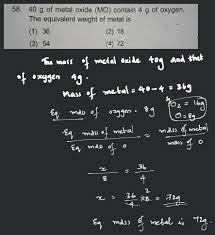 58. 40 g of metal oxide (MO) contain 4 g of oxygen.
The equivalent weight of metal is
(1) 36 (2) 18
(3) 54 (4) 72
The mass of metal oxide 40g and that
of oxygen 4g.
Mass of metal = 40-4 = 36g
Eq. mass of oxygen = 8g
O2 = 16g
O = 8g
Eq. mass of metal / Eq. mass of O = mass of metal / mass of O
x / 8 = 36 / 4
x = 36 / 4 × 8 2 = 72g
Eq. mass of metal is 72g